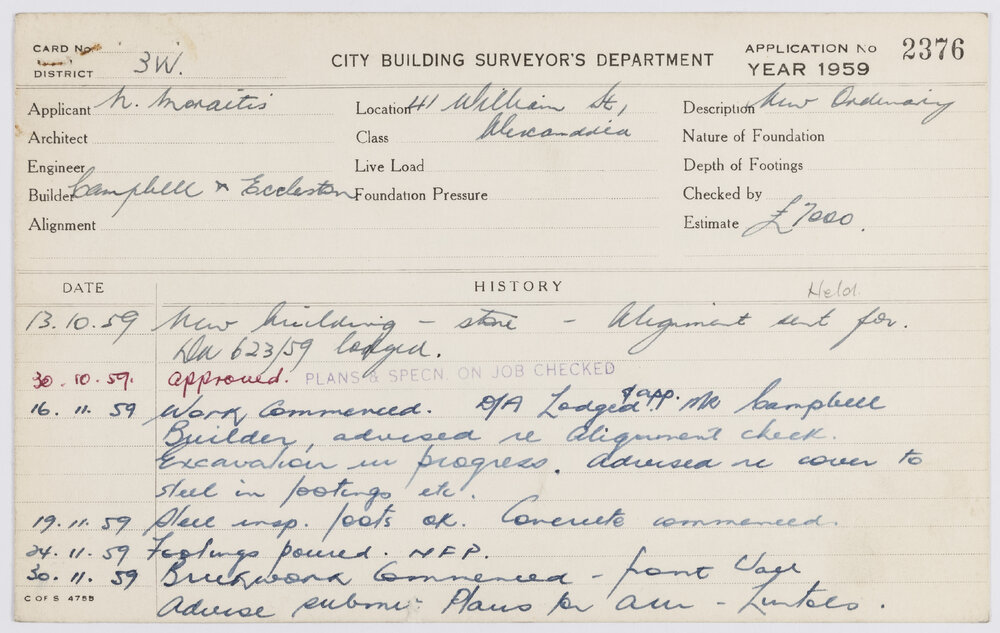 CARD No
DISTRICT 3W.
CITY BUILDING SURVEYOR'S DEPARTMENT
APPLICATION No 2376
YEAR 1959
Applicant N. Moraitis
Location 41 William St,
Description New Ordinary
Architect
Class Alexandria
Nature of Foundation
Engineer
Live Load
Depth of Footings
Builder Campbell & Eccleston
Foundation Pressure
Checked by
Alignment
Estimate £7000.
DATE
HISTORY
Held.
13.10.59 New building - store - Alignment sent for.
DA 623/59 lodged.
30.10.59. approved. PLANS & SPECN. ON JOB CHECKED
16.11.59 Work Commenced. D/A Lodged & app. Mr Campbell
Builder, advised re alignment check.
Excavation in progress. advised re cover to
steel in footings etc.
19.11.59 Steel insp. foots ok. Concrete commenced.
24.11.59 Footings poured. N.F.P.
30.11.59 Brickwork Commenced - front Wall
Advise submit Plans for - Lintols.
C OF S 475B